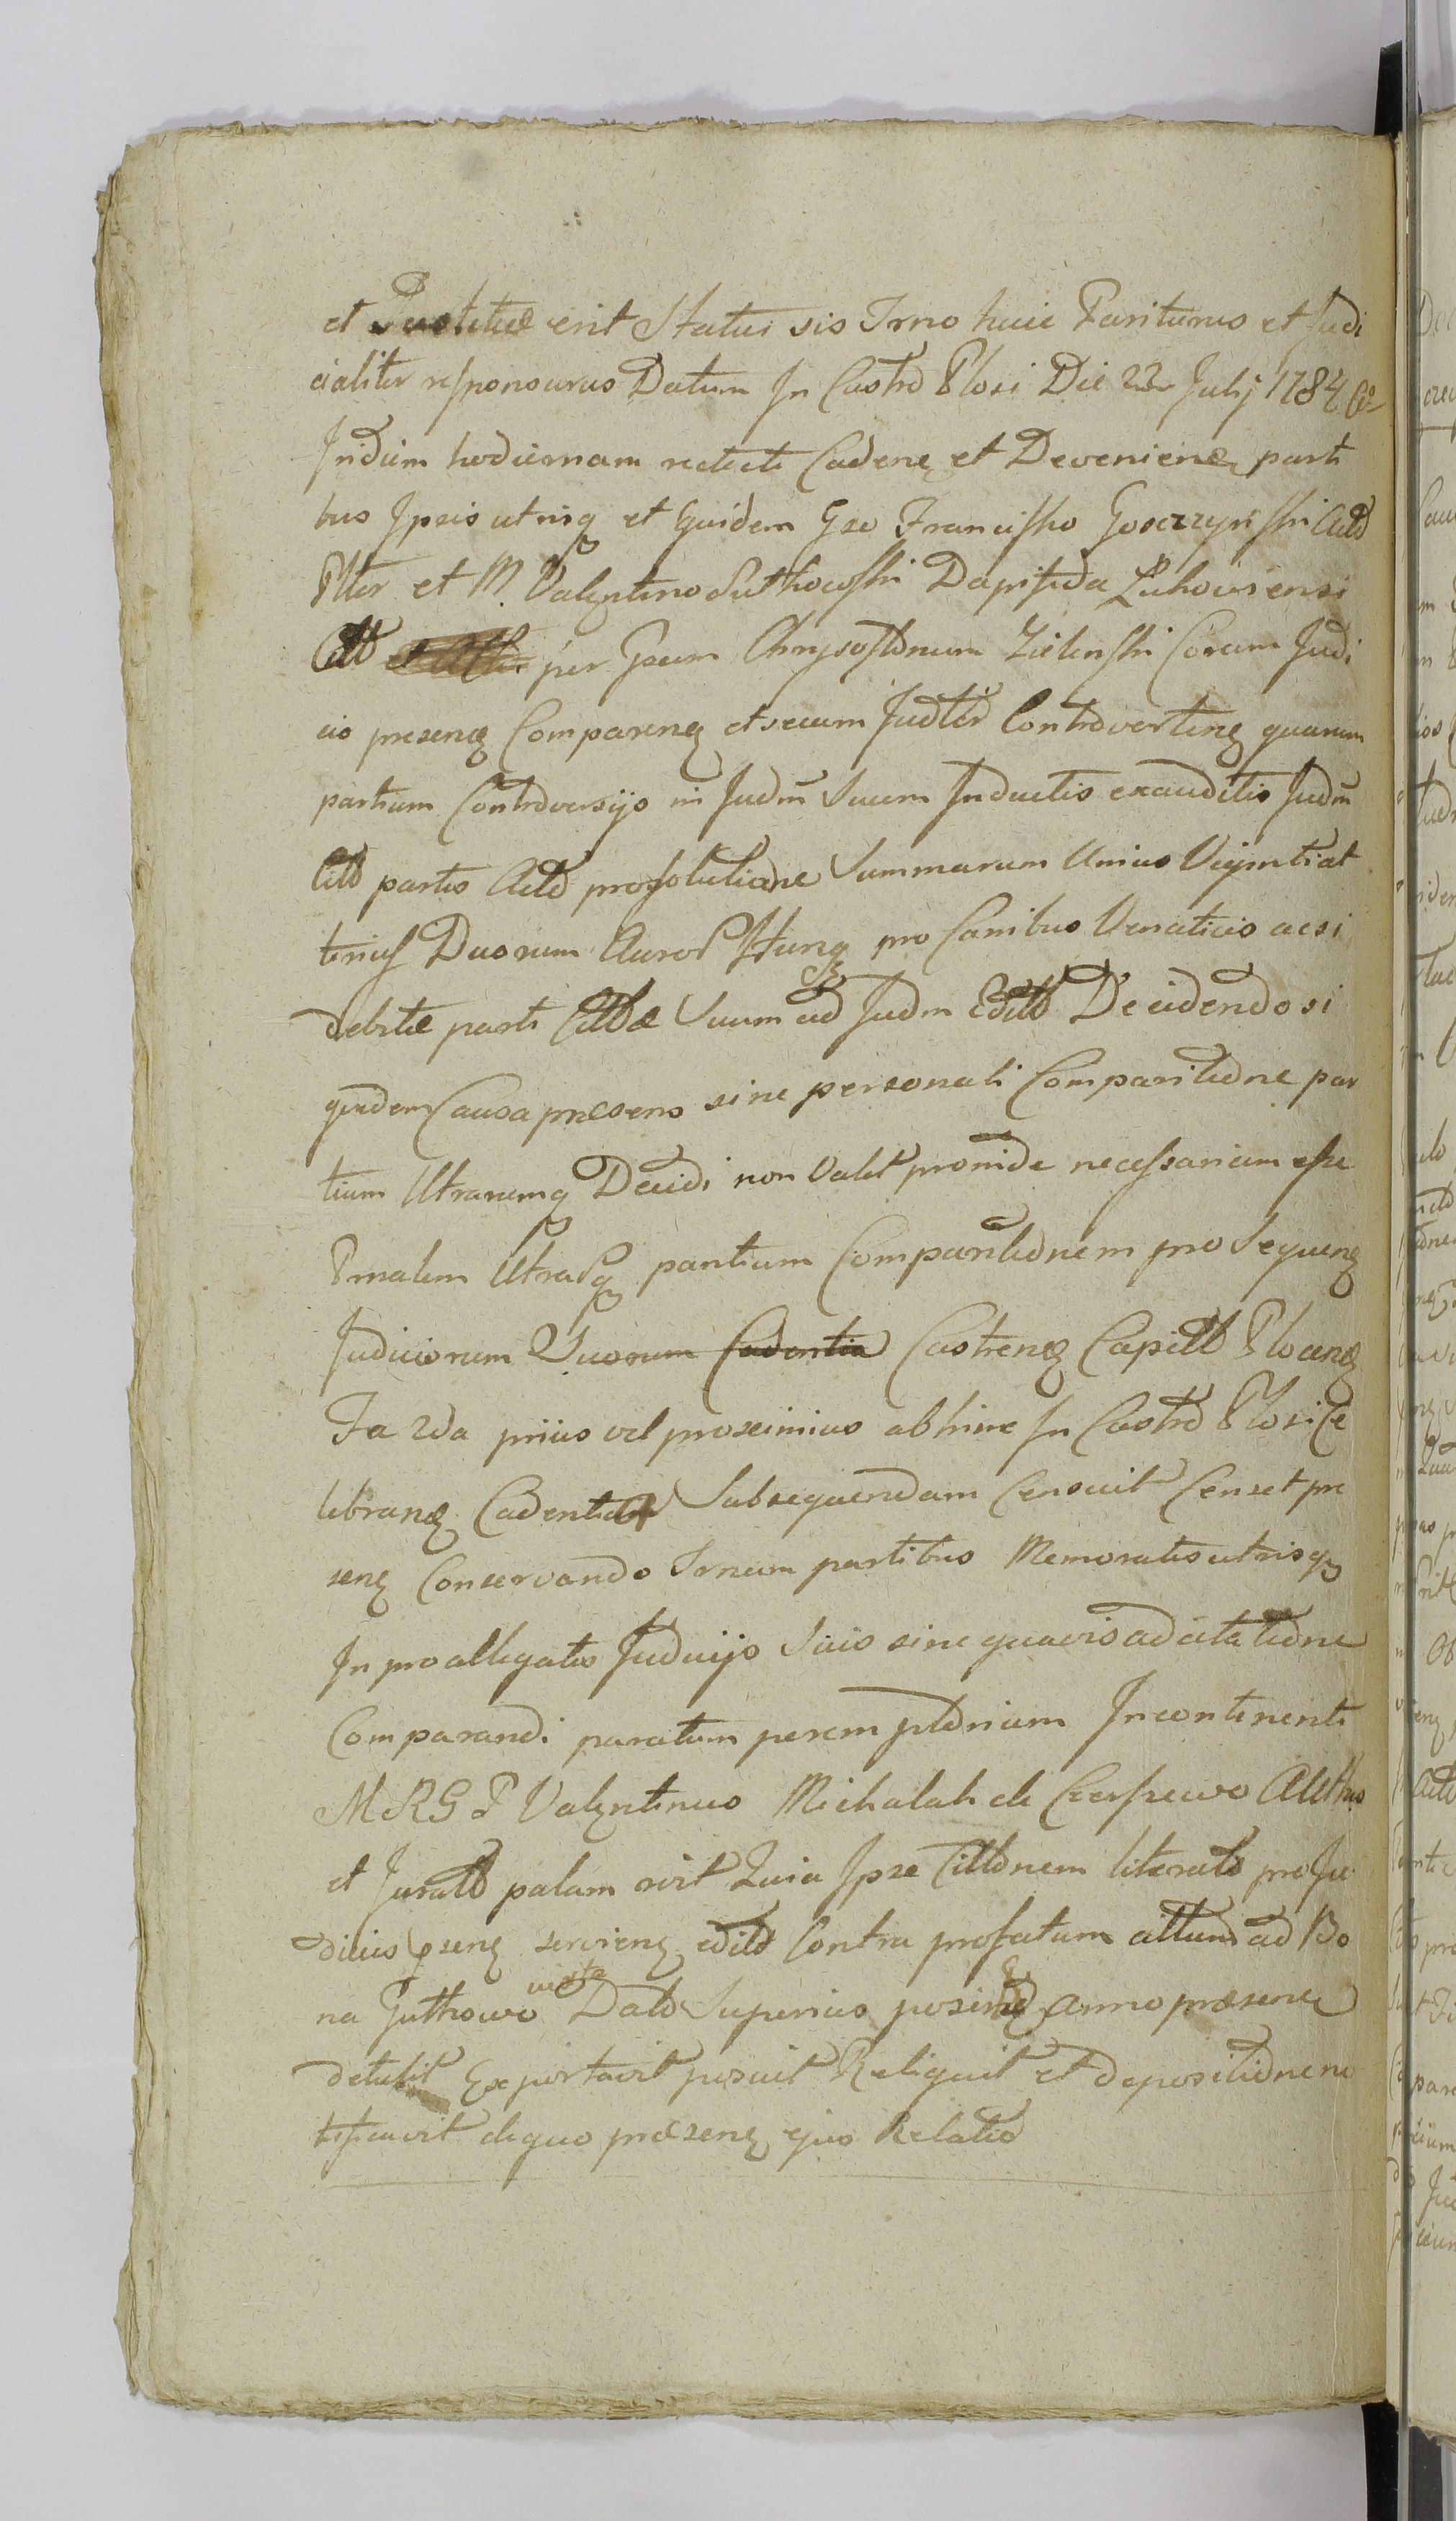 et Justitiæ erit Status sis Trno huic Pariturus et Judi
cialiter responsurus Datum In Castro Plosi Die 22 Julij 1784
Indiem hodiernam recte Cadenę et Devenienę parti
bus Ipsis utrisq et Quidem Gso Francisko Goszczynski Actd
Plter et M. Valentino Gutkowski Dapifida Zukovienensi
Cittd per Gsum Chrysostomum Zielinski Coram Judi
cio presenę Comparenę et secum Judter Controvertenę quarum
partium Controversijs in Judm Suum Inductis exauditis Judm
Cittd partis Actd pro solutione Summarum Unius Viginti at
terius Duorum Auror Hung pro Canibus Venaticis acsi
debitæ parti Cittdæ Suum ad Judm Edittd Decidendo si
quidem Causa præsens sine personali Comparitione par
tium Utrarumq Decidi non Valet proinde necessarium esse
Prnalem Utrasq partium Comparitionem pro Sequenę
Judiciorum Suorum Cadentia Castrenę Capittd Plocenę
Fa 2da prius vel proximius abhinc In Castro Plosi Ce
lebranę Cadentia Subsequendam Censuit Censet pre
senę Conservando Trnum partibus Memoratis utrisq
In pro allegatis Judicijs Suis sine quavis adcitatione
Comparandi paratum peremptorium Incontinenti
M R G P Valentinus Michalak de
et Juratd palam rvit Quia Ipse Cittdnem literatd pro Ju
dicijs psenę servienę edittd Contra profatum cittum ad Bo
na Gutkowo Datd Superius anno præsenę
detulit Exportavit posuit Reliquit et depositione no
tificavit de quo præsenę ejus Relatio